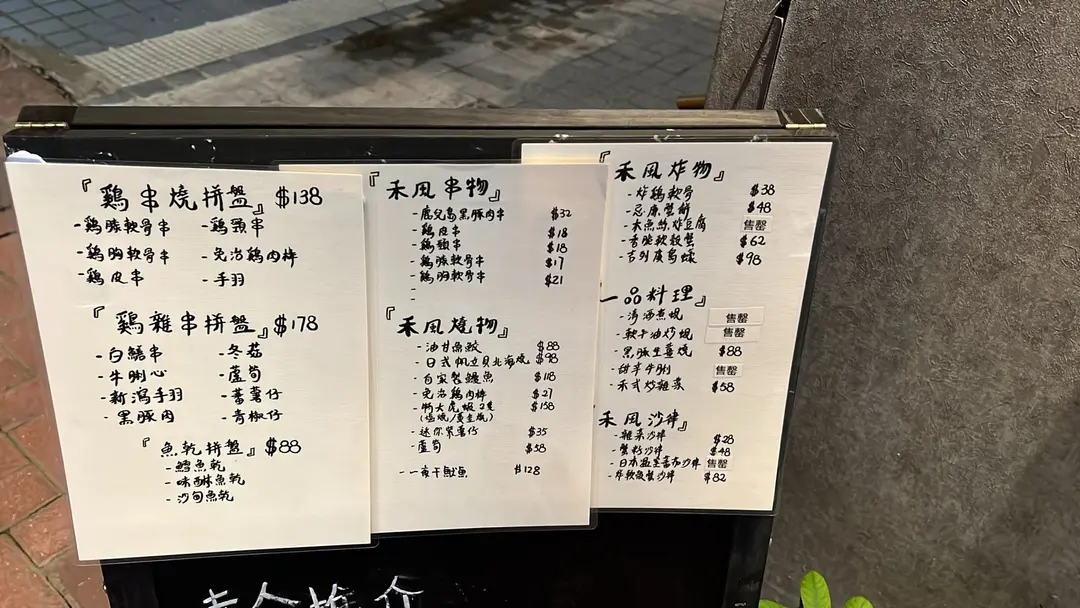 『鷄串燒拼盤』$138
-鷄膝軟骨串 -鷄頸串
-鷄胸軟骨串 -免治鷄肉棒
-鷄皮串 -手羽
『鷄雜串拼盤』$178
-白鱔串 -冬菇
-牛脷心 -蘆筍
-新潟手羽 -蕃薯仔
-黑豚肉 -青椒仔
『魚乾拼盤』$88
-鱈魚乾
-味醂魚乾
-沙甸魚乾
『禾風串物』
-鹿兒島黑豚肉串 $32
-鷄皮串 $18
-鷄頸串 $18
-鷄膝軟骨串 $17
-鷄胸軟骨串 $21
-
-
『禾風燒物』
-油甘魚鮫 $88
-日式帆立貝北海燒 $98
-自家製鰻魚 $118
-免治鷄肉棒 $27
-大虎蝦2隻 $158
-迷你紫薯仔 $35
-蘆筍 $58
-一夜干魷魚 $128
『禾風炸物』
-炸鷄軟骨 $38
-忌廉蟹餅 $48
-木魚絲炸豆腐 售罄
-香脆軟殼蟹 $62
-吉列廣島蠔 $98
一品料理』
-清酒煮蜆 售罄
-軟牛油炒蜆 售罄
-黑豚生薑燒 $88
-甜羊牛脷 售罄
-禾式炒雜菜 $58
禾風沙律』
-雜菜沙律 $28
-蟹籽沙律 $48
-日本溫室蕃茄沙律 售罄
-炸軟殼蟹沙律 $82